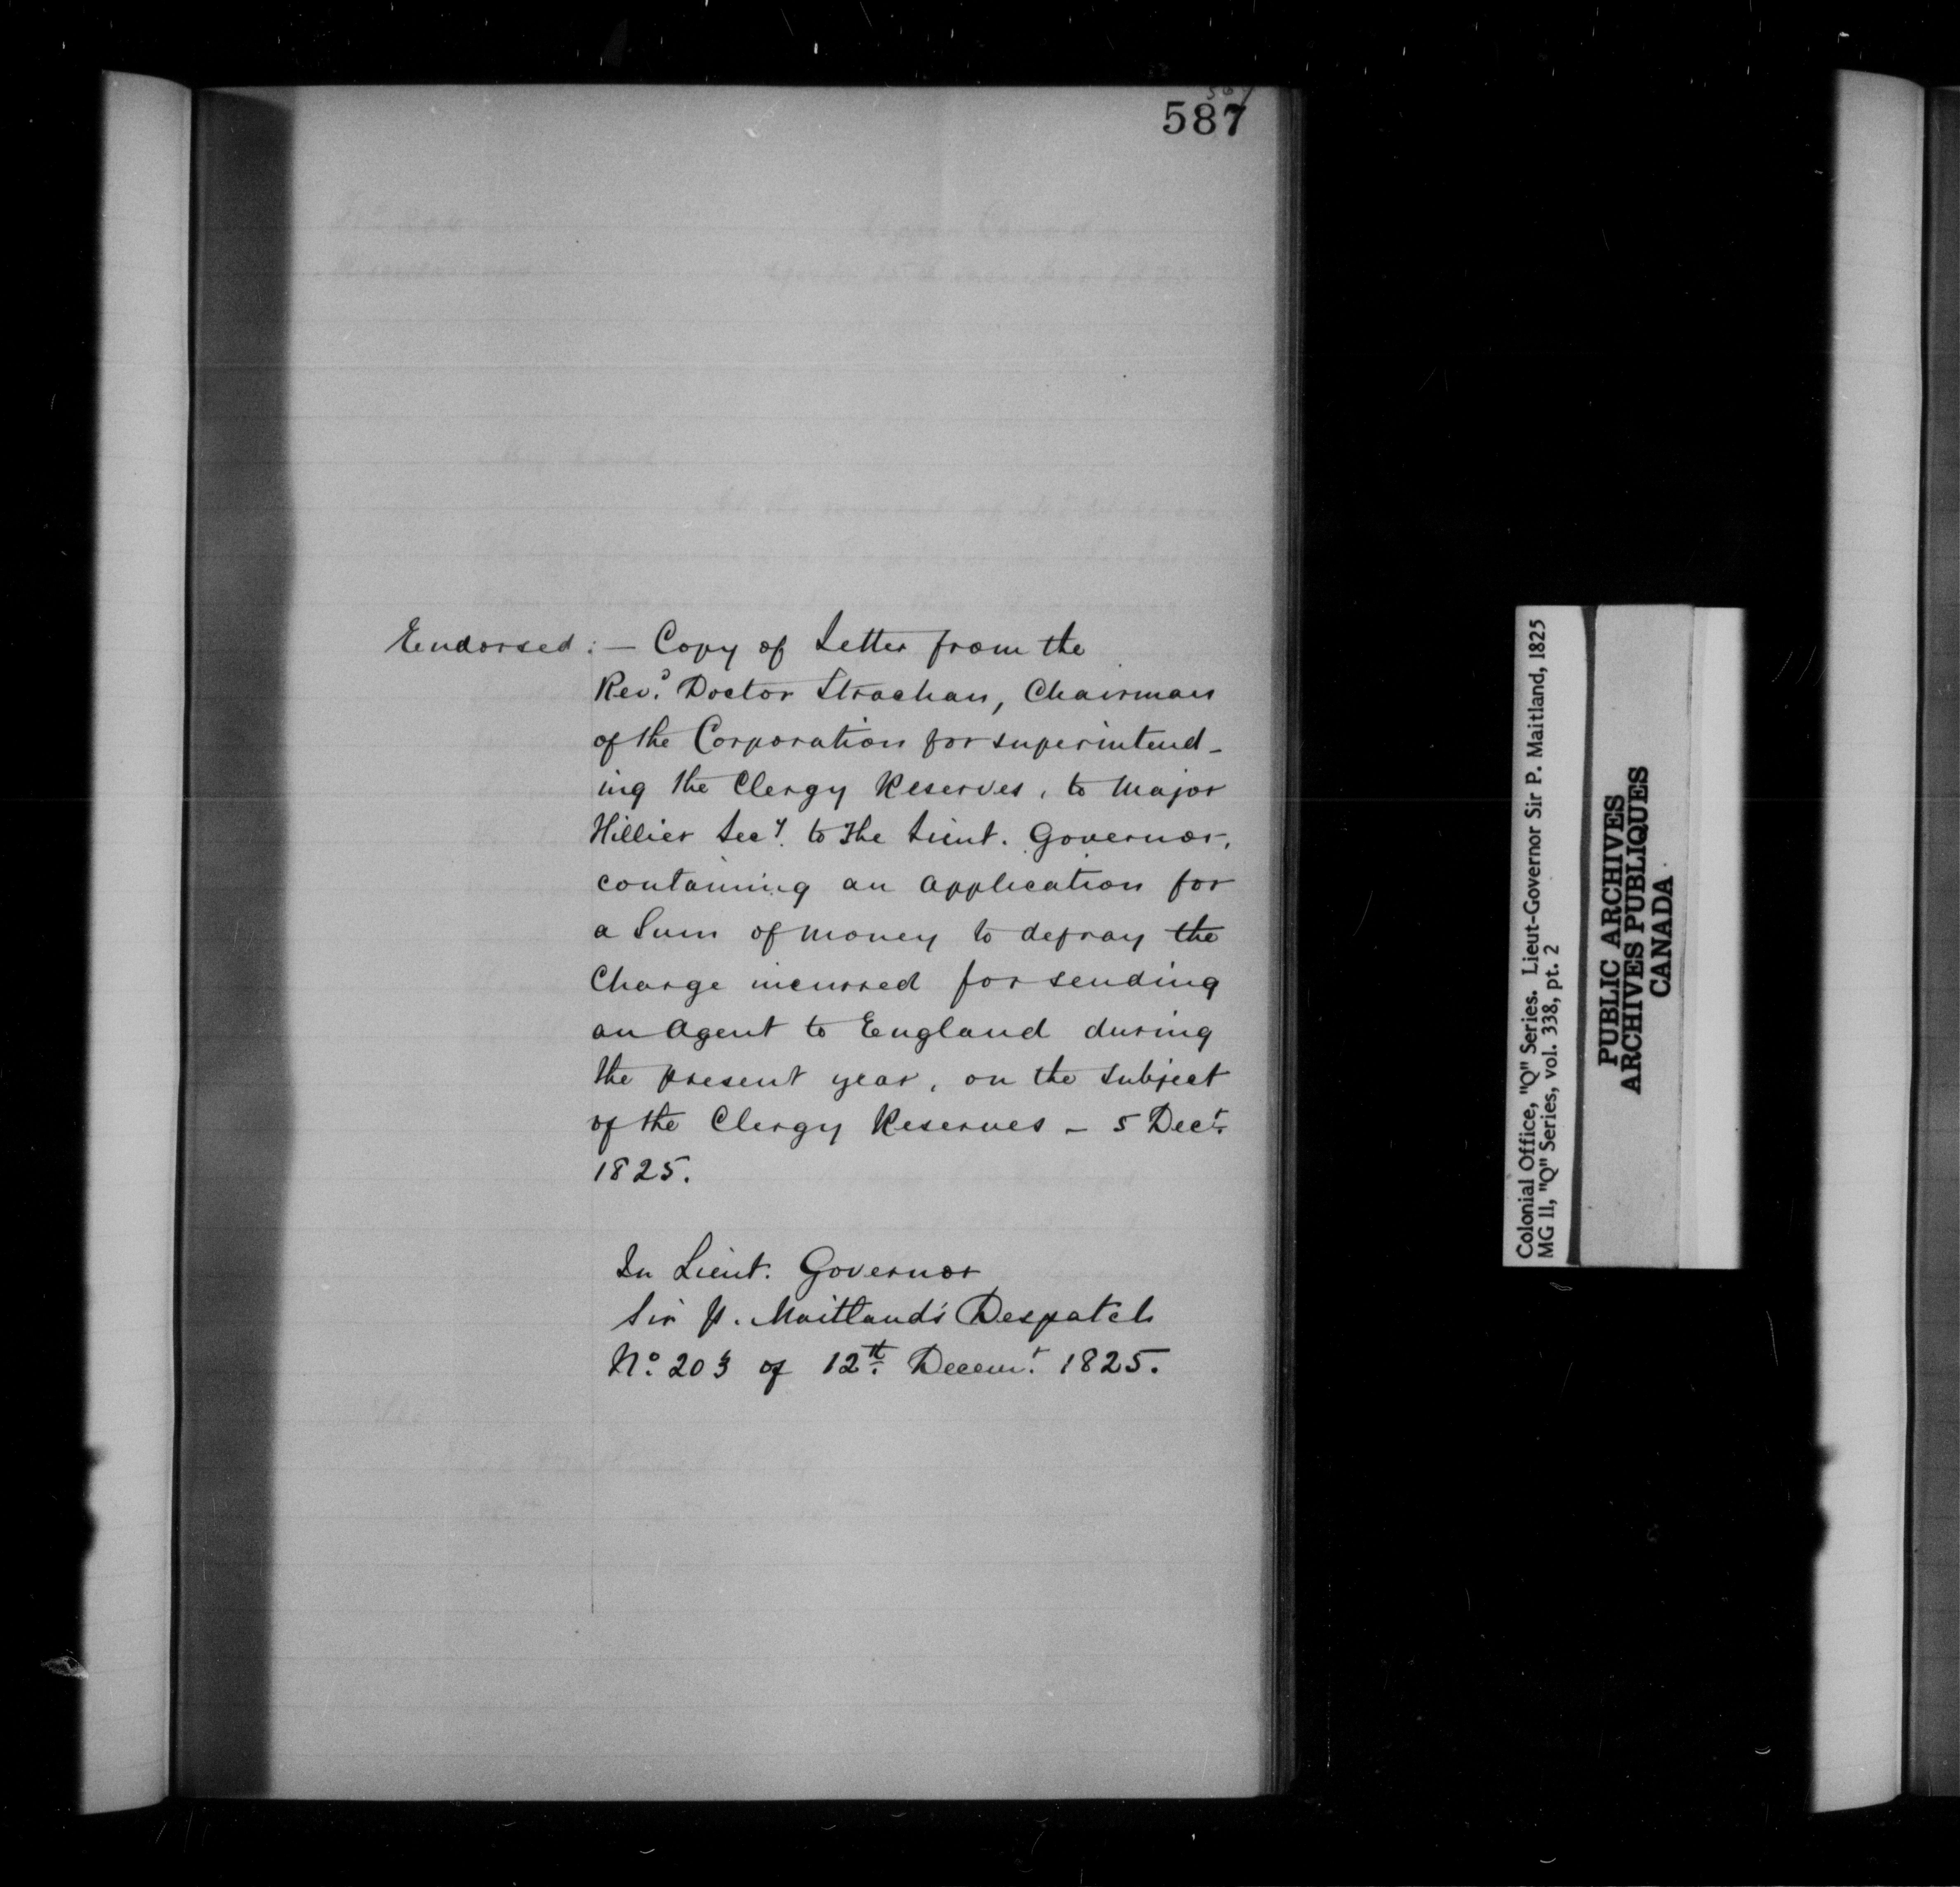 587
Endorsed:— Copy of Letter from the
Rev.d Doctor Strachan, Chairman
of the Corporation for superintend-
ing the Clergy Reserves, to Major
Hillier Secy. to the Lieut. Governor,
containing an application for
a Sum of money to defray the
Charge incurred for sending
an Agent to England during
the present year, on the subject
of the Clergy Reserves – 5 Decr.
1825.
In Lieut. Governor
Sir P. Maitland's Despatch
No. 203 of 12th. Decemr. 1825.
Colonial Office, "Q" Series. Lieut-Governor Sir P. Maitland, 1825
MG 11, "Q" Series, vol. 338, pt. 2
PUBLIC ARCHIVES
ARCHIVES PUBLIQUES
CANADA